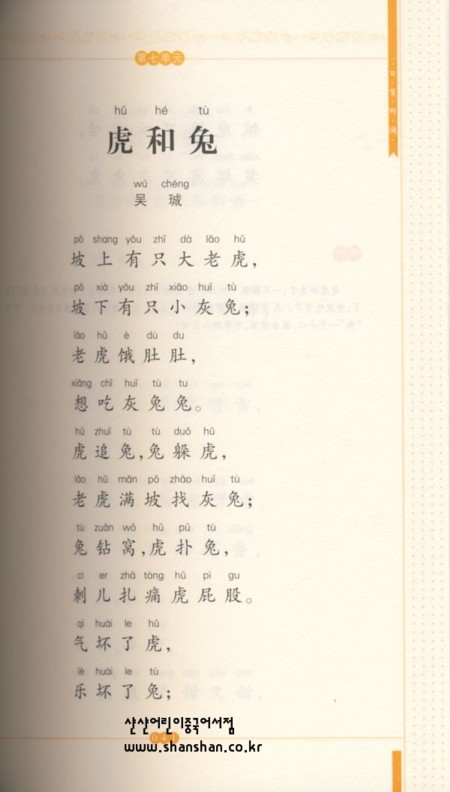 第七单元
hǔ hé tù
虎和兔
wú chéng
吴 珹
pō shang yǒu zhī dà lǎo hǔ
坡上有只大老虎，
pō xià yǒu zhī xiǎo huī tù
坡下有只小灰兔；
lǎo hǔ è dù du
老虎饿肚肚，
xiǎng chī huī tù tu
想吃灰兔兔。
hǔ zhuī tù tù duǒ hǔ
虎追兔，兔躲虎，
lǎo hǔ mǎn pō zhǎo huī tù
老虎满坡找灰兔；
tù zuān wō hǔ pū tù
兔钻窝，虎扑兔，
cì er zhā tòng hǔ pì gu
刺儿扎痛虎屁股。
qì huài le hǔ
气坏了虎，
lè huài le tù
乐坏了兔；
샨샨어린이중국어서점
www.shanshan.co.kr